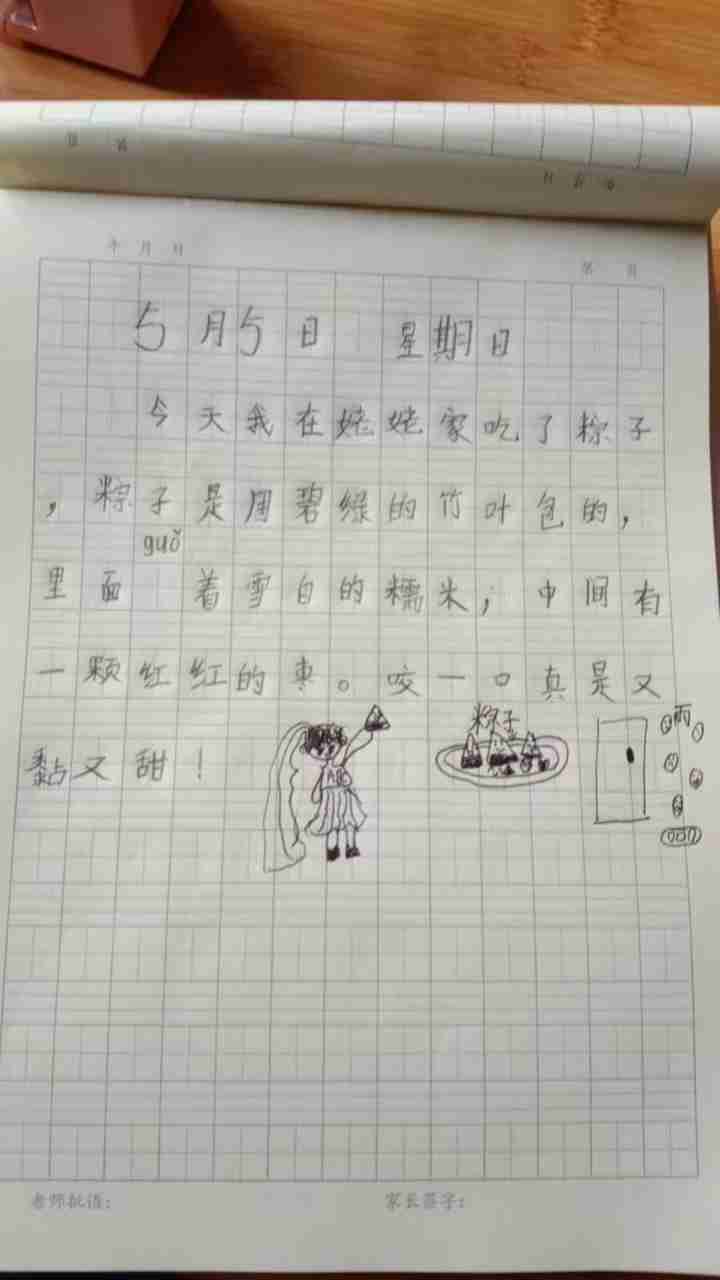 年 月 日
第 页
5月5日 星期日
今天我在姥姥家吃了粽子
，粽子是用碧绿的竹叶包的，
guǒ
里面 着雪白的糯米；中间有
一颗红红的枣。咬一口真是又
黏又甜！
粽子
雨
老师批语：
家长签字：